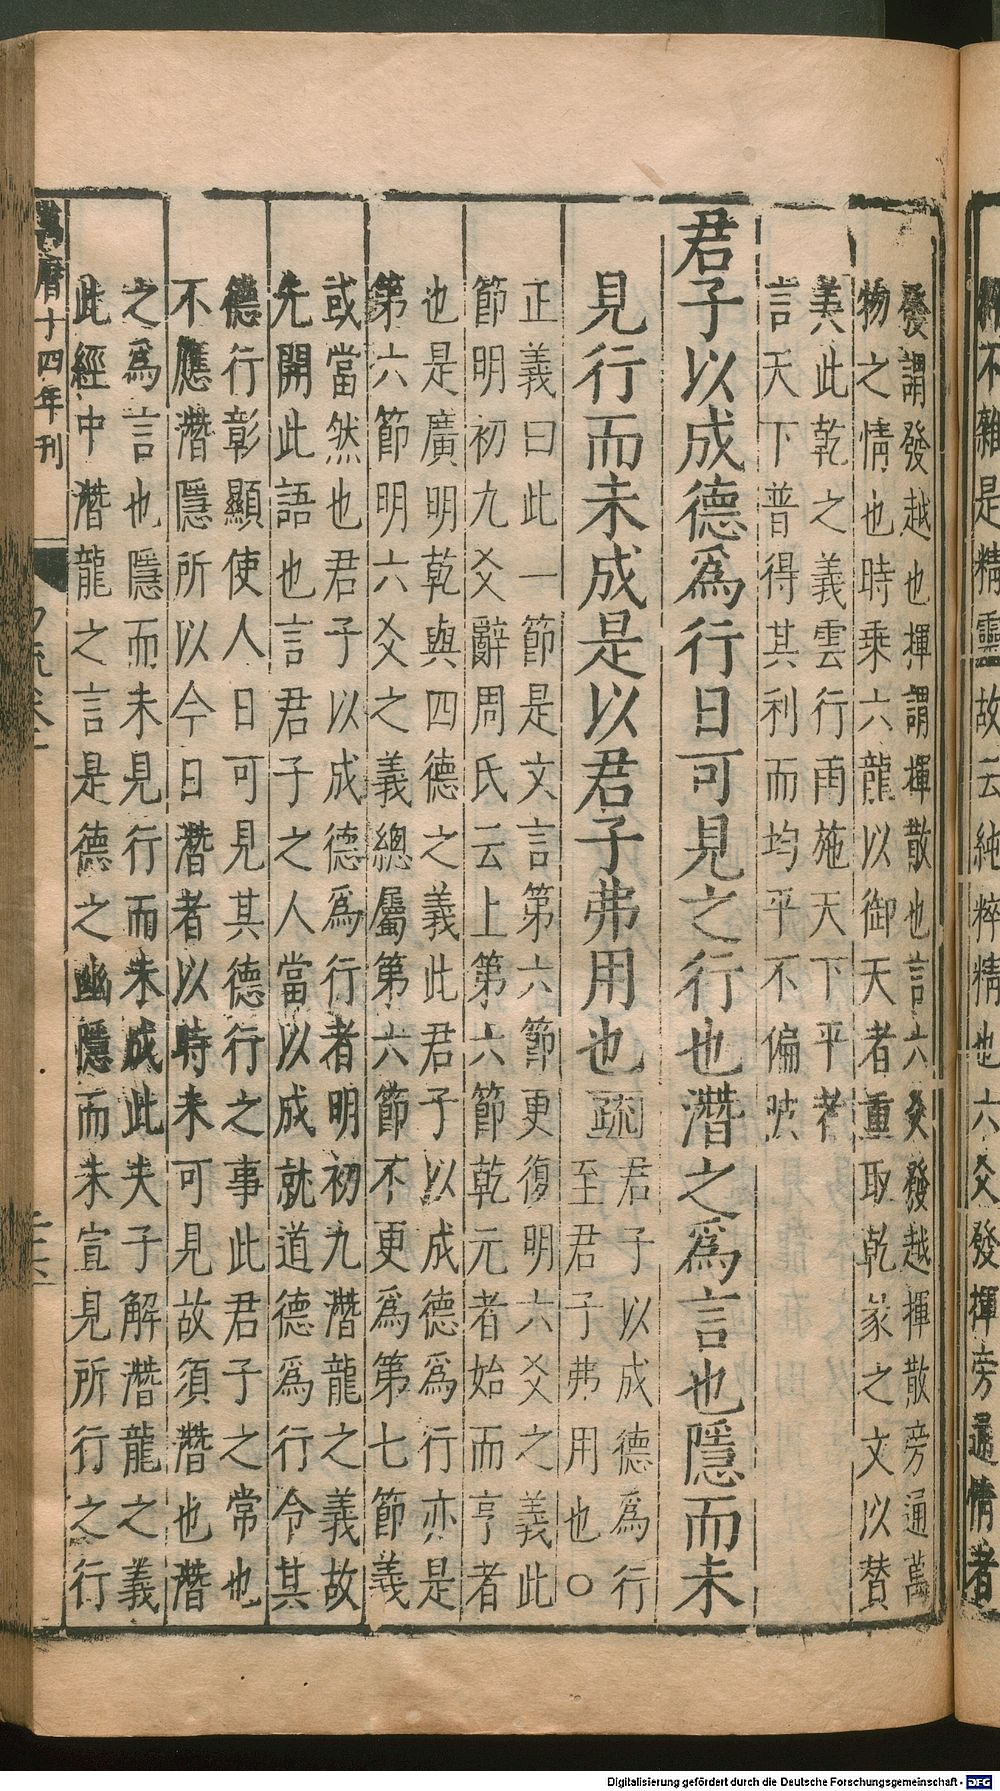 不雜是精靈故云純粹精也六爻發揮旁通情者
發謂發越也揮謂揮散也言六爻發越揮散旁通萬
物之情也時乗六龍以御天者重取乾彖之文以賛
美此乾之義雲行雨施天下平者
言天下普得其利而均平不偏陂
君子以成德爲行日可見之行也潛之爲言也隱而未
見行而未成是以君子弗用也疏
君子以成德爲行
至君子弗用也○
正義曰此一節是文言第六節更復明六爻之義此
節明初九爻辭周氏云上第六節乾元者始而亨者
也是廣明乾與四德之義此君子以成德爲行亦是
第六節明六爻之義總屬第六節不更爲第七節義
或當然也君子以成德爲行者明初九潛龍之義故
先開此語也言君子之人當以成就道德爲行令其
德行彰顯使人日可見其德行之事此君子之常也
不應潛隱所以今日潛者以時未可見故須潛也潛
之爲言也隱而未見行而未成此夫子解潛龍之義
此經中潛龍之言是德之幽隱而未宣見所行之行
萬曆十四年刊